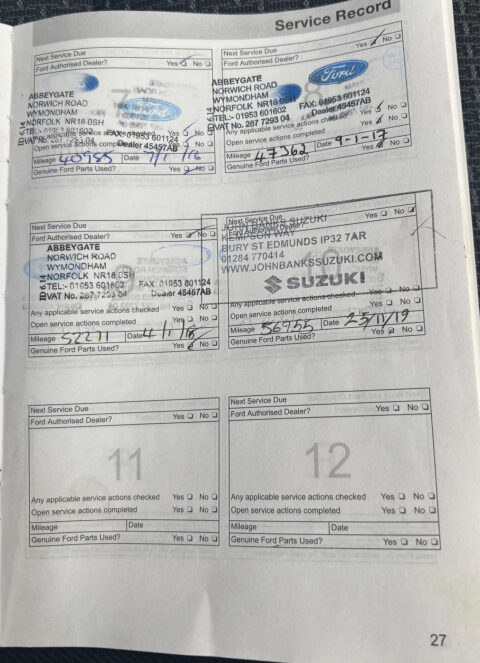 Service Record
Next Service Due
Ford Authorised Dealer? Yes No
ABBEYGATE
NORWICH ROAD
WYMONDHAM
NORFOLK NR18 0SH
TEL:- 01953 601602 FAX: 01953 601124
VAT No. 287 7293 04 Dealer 45457AB
Open service actions completed
Mileage 40985 Date 7/1/16
Genuine Ford Parts Used? Yes No
Next Service Due
Yes No
Ford
ABBEYGATE
NORWICH ROAD
WYMONDHAM
NORFOLK NR18 0SH
TEL:- 01953 601602 FAX: 01953 601124
VAT No. 287 7293 04 Dealer 45457AB
Any applicable service actions checked
Open service actions completed
Mileage 47362 Date 9-1-17
Genuine Ford Parts Used? Yes No
Next Service Due
Ford Authorised Dealer? Yes No
ABBEYGATE
NORWICH ROAD
WYMONDHAM
NORFOLK NR18 0SH
TEL:- 01953 601602 FAX: 01953 601124
VAT No. 287 7293 04 Dealer 45457AB
Any applicable service actions checked Yes No
Open service actions completed Yes No
Mileage 52271 Date 4/1/18
Genuine Ford Parts Used? Yes No
Next Service Due
Ford Authorised Dealer? Yes No
JOHN BANKS SUZUKI
KEMPSON WAY
BURY ST EDMUNDS IP32 7AR
01284 770414
WWW.JOHNBANKSSUZUKI.COM
SUZUKI
Any applicable service actions checked Yes No
Open service actions completed Yes No
Mileage 56955 Date 25/11/19
Genuine Ford Parts Used? Yes No
Next Service Due
Ford Authorised Dealer? Yes No
11
Any applicable service actions checked Yes No
Open service actions completed Yes No
Mileage Date
Genuine Ford Parts Used? Yes No
Next Service Due
Ford Authorised Dealer? Yes No
12
Any applicable service actions checked Yes No
Open service actions completed Yes No
Mileage Date
Genuine Ford Parts Used? Yes No
27